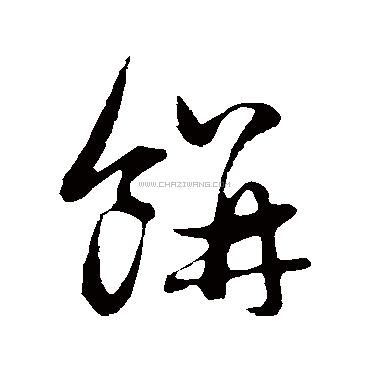 餅
WWW.CHAZIWANG.COM